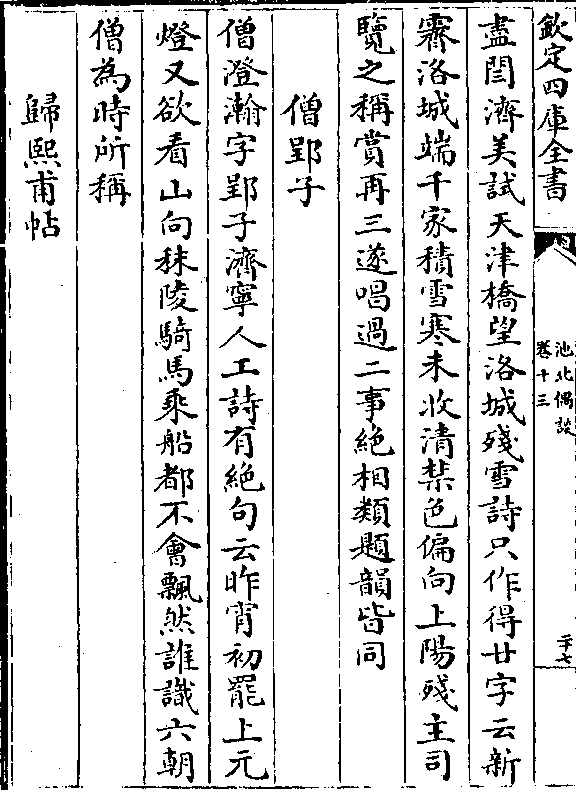 欽定四庫全書
池北偶談
卷十三
二十七
盡閻濟美試天津橋望洛城殘雪詩只作得廿字云新
霽洛城端千家積雪寒未收清禁色偏向上陽殘主司
覽之稱賞再三遂唱過二事絶相類題韻皆同
僧郢子
僧澄瀚字郢子濟寧人工詩有絶句云昨宵初罷上元
燈又欲看山向秣陵騎馬乘船都不會飄然誰識六朝
僧為時所稱
歸熙甫帖